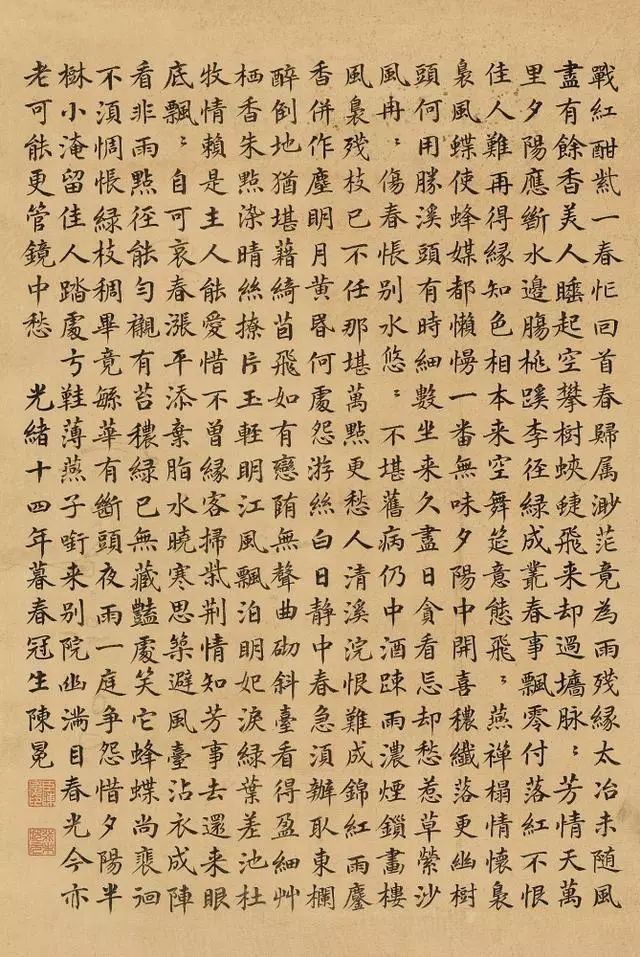 戰紅酣紫一春忙回首春歸属渺茫竟為雨殘緣太冶未随風
盡有餘香美人睡起空攀樹蛺蜨飛来却過墻脉〻芳情天萬
里夕陽應斷水邊腸桃蹊李徑綠成叢春事飄零付落紅不恨
佳人難再得緣知色相本来空舞筵意態飛〻燕禪榻情懷裊
裊風蝶使蜂媒都懶慢一番無味夕陽中開喜穠纖落更幽樹
頭何用勝溪頭有時細數坐来久盡日貪看忘却愁惹草縈沙
風冉〻傷春悵別水悠〻不堪舊病仍中酒踈雨濃煙鎖畫樓
風裊殘枝已不任那堪萬點更愁人清溪浣恨難成錦紅雨鏖
香併作塵明月黃昏何處怨游絲白日靜中春急湏辦取東欄
醉倒地猶堪藉綺茵飛如有戀陏無聲曲砌斜臺看得盈細艸
栖香朱點染晴絲撩片玉輕明江風飄泊明妃淚綠葉差池杜
牧情賴是主人能愛惜不曾緣客掃柴荊情知芳事去還来眼
底飄〻自可哀春漲平添棄脂水曉寒思築避風臺沾衣成陣
看非雨點徑能勻襯有苔穠綠已無藏豔處笑它蜂蝶尚裴徊
不湏惆悵綠枝稠畢竟繁華有斷頭夜雨一庭爭怨惜夕陽半
樹小淹留佳人踏處弓鞋薄燕子銜来別院幽滿目春光今亦
老可能更管鏡中愁 光緒十四年暮春冠生陳冕